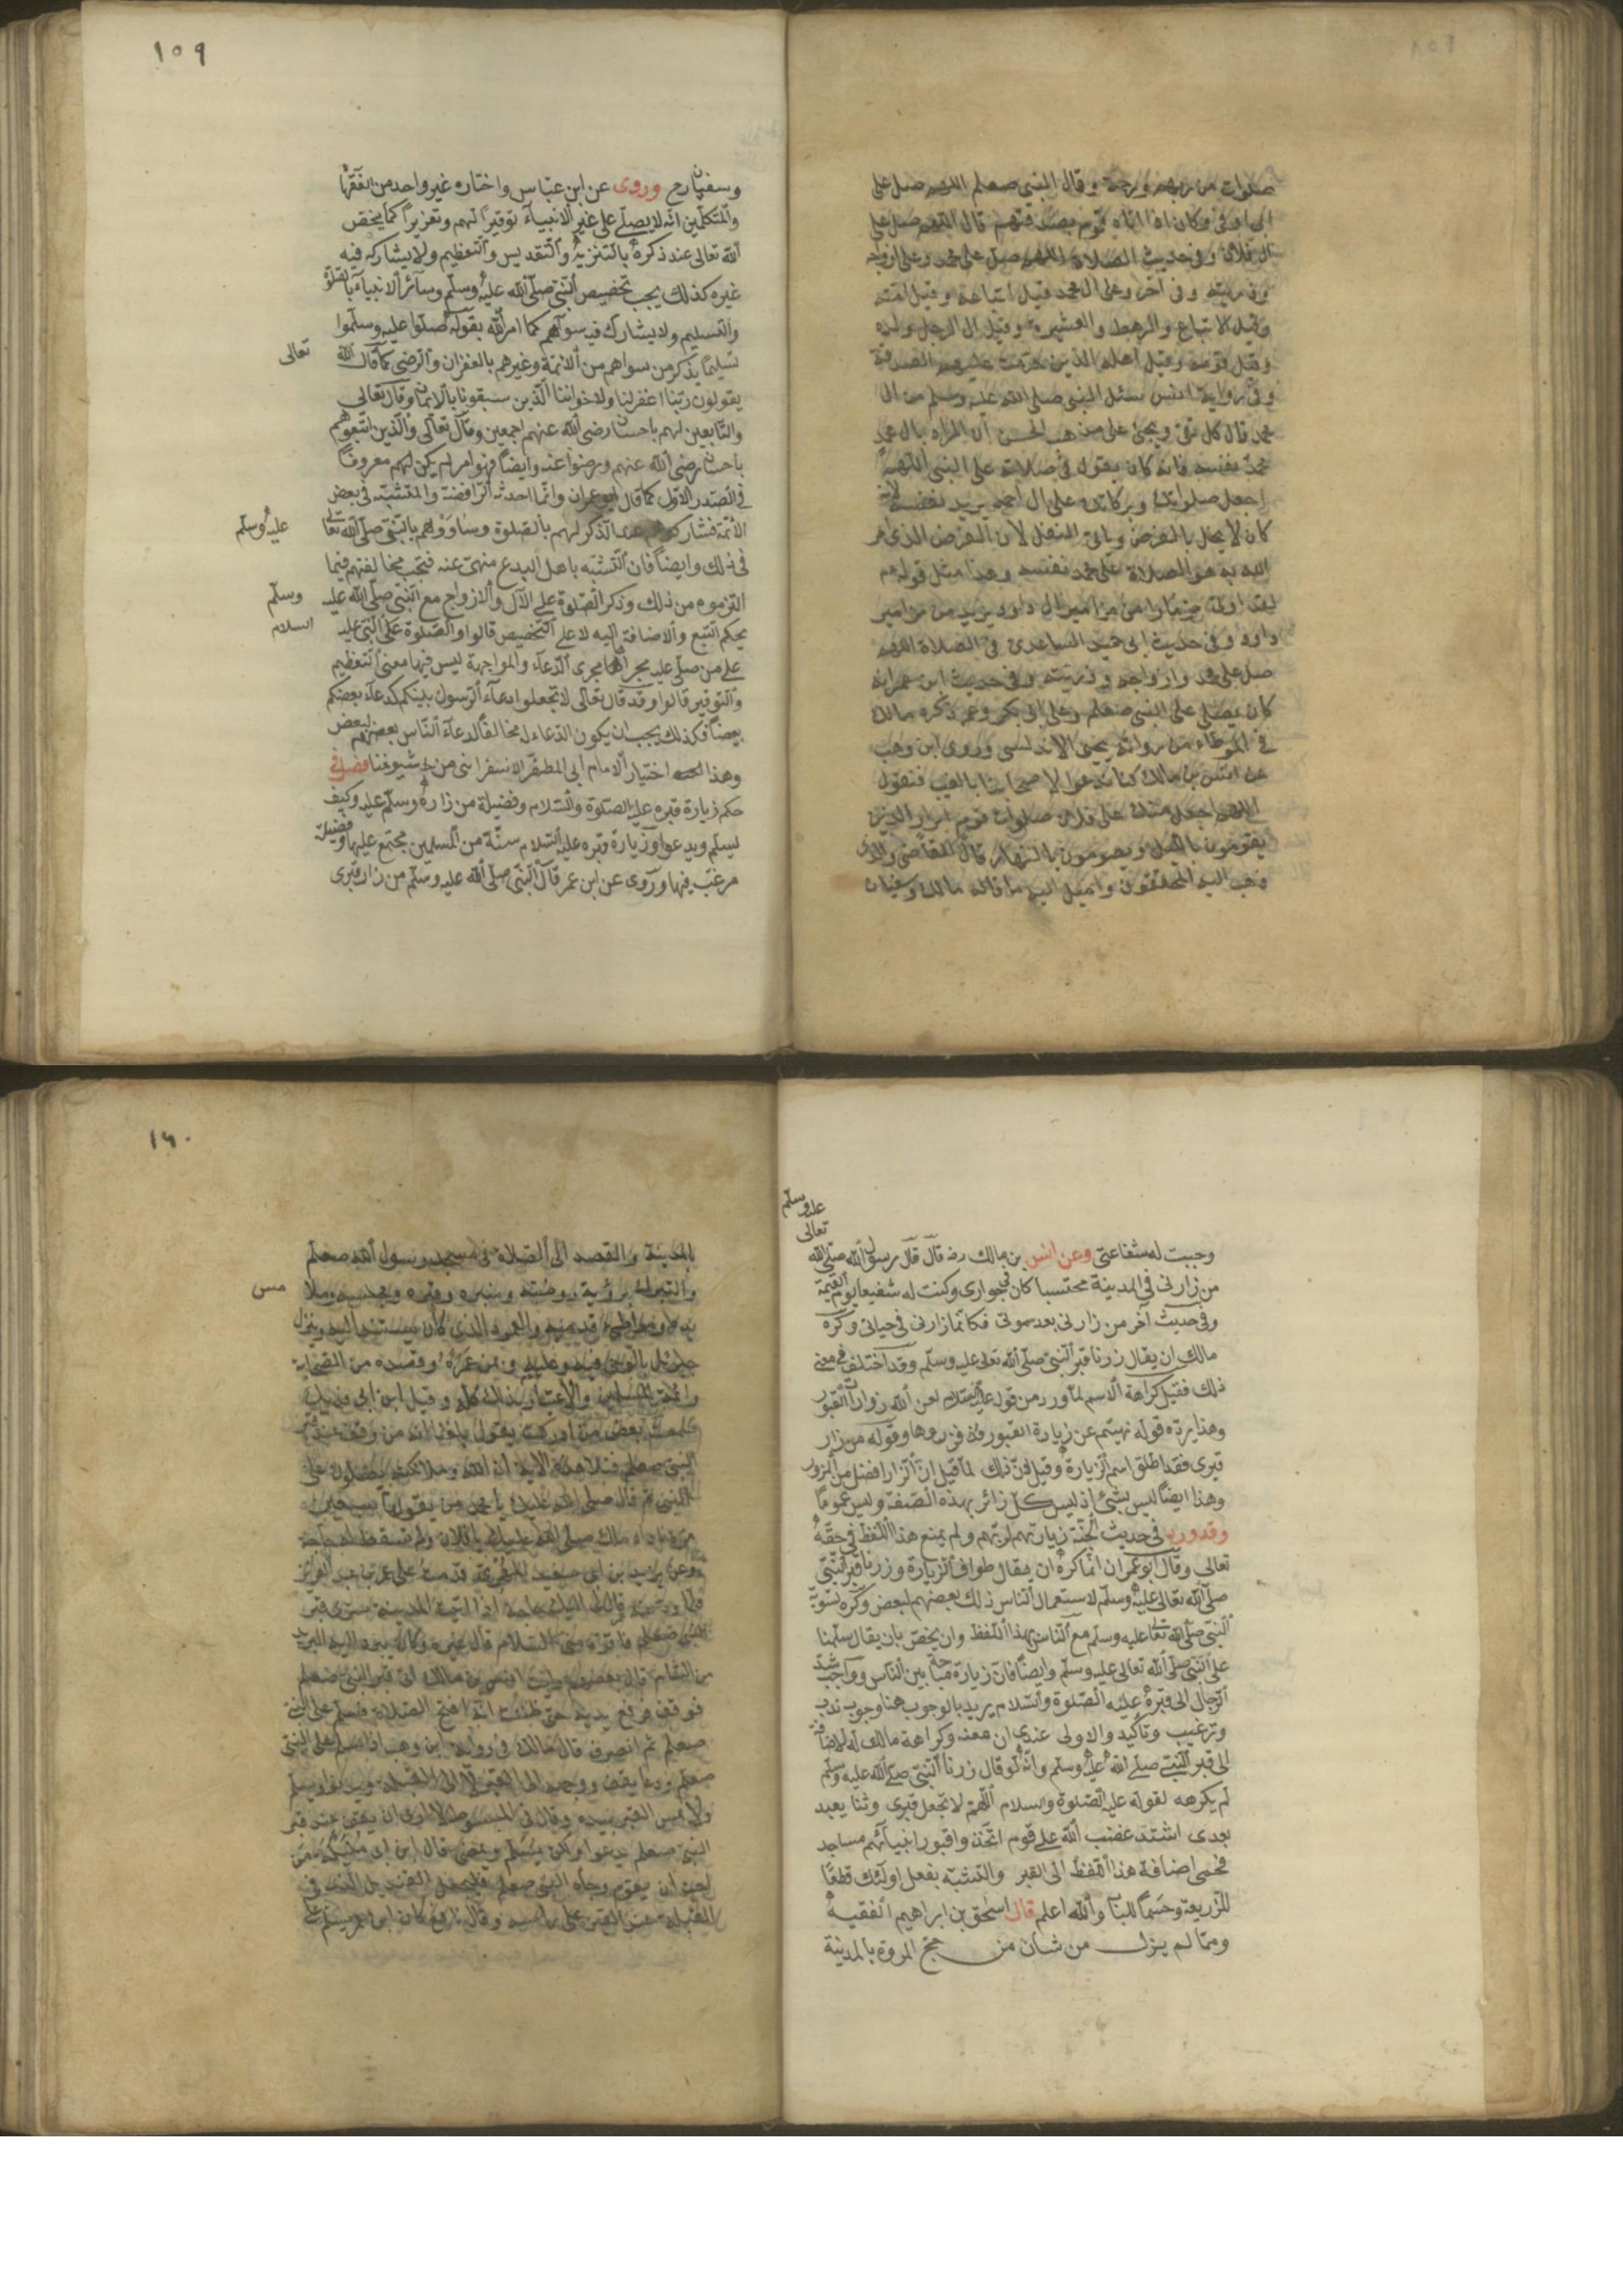 صلوات من ربهم ورحمة وقال النبي صعلم اللهم صل على
ال ابي اوفى وكان اذا اتاه قوم بصدقتهم قال اللهم صل على
ال فلان وفي حديث الصلاة اللهم صل على محمد وعلى ازواجه
وذريته وفي آخر وعلى ال محمد قيل اتباعه وقيل امته
وقيل الاتباع والرهط والعشيرة وقيل ال الرجل ولده
وقيل قومه وقيل اهله الذين حرمت عليهم الصدقة
وفي رواية انس سئل النبي صلى الله عليه وسلم من ال
محمد قال كل تقي ويجئ على مذهب الحسن ان المراد بال محمد
محمد نفسه فانه كان يقول في صلاته على النبي اللهم
اجعل صلواتك وبركاتك على ال احمد يريد نفسه لانه
كان لا يخل بالفرض ويأتي النفل لان الفرض الذي امر
الله به هو الصلاة على محمد نفسه وهذا مثل قوله عم
لقد اوتي مزمارا من مزامير ال داود يريد من مزامير
داود وفي حديث ابي حميد الساعدي في الصلاة اللهم
صل على محمد وازواجه وذريته وفي حديث ابن عمر انه
كان يصلي على النبي صعلم وعلى ابي بكر وعمر ذكره مالك
في الموطاء من رواية يحيى الاندلسي وروى ابن وهب
عن انس بن مالك كنا ندعو لاصحابنا بالغيب فنقول
اللهم اجعل منك على فلان صلوات قوم ابرار الذين
يقومون بالليل ويصومون بالنهار قال القاضي والذي
ذهب اليه المحققون واميل اليه ما قاله مالك وسفيان
١٥٩
وسفيان رح وروى عن ابن عباس واختاره غير واحد من الفقهآ
والمتكلمين انه لا يصلى على غير الانبيآء توقيرا لهم وتعزيرا كما يخص
الله تعالى عند ذكره بالتنزيه والتقديس والتعظيم ولا يشاركه فيه
غيره كذلك يجب تخصيص النبي صلى الله عليه وسلم وسآئر الانبيآء بالصلوة
والتسليم ولا يشارك فيه سواهم كما امر الله بقوله صلوا عليه وسلموا
تسليما يذكر من سواهم من الائمة وغيرهم بالغفران والرضى كما قال الله
تعالى
يقولون ربنا اغفر لنا ولاخواننا الذين سبقونا بالايمان وقال تعالى
والتابعين لهم باحسان رضى الله عنهم اجمعين وقال تعالى والذين اتبعوهم
باحسان رضى الله عنهم ورضوا عنه وايضا فهو امر لم يكن لهم معروفا
في الصدر الاول كما قال ابو عمران وانما احدثه الرافضة والمتشيعة في بعض
الائمة فشاركوهم عند الذكر لهم بالصلوة وساووهم بالنبي صلى الله تعالى
عليه وسلم
في ذلك وايضا فان التشبه باهل البدع منهى عنه فتجب مخالفتهم فيما
التزموه من ذلك وذكر الصلوة على الآل والازواج مع النبي صلى الله عليه
وسلم
بحكم التبع والاضافة اليه لا على التخصيص قالوا والصلوة على النبي عليه
السلام
على من صلى عليه مجراها مجرى الدعآء والمواجهة ليس فيها معنى التعظيم
والتوقير قالوا وقد قال تعالى لا تجعلوا دعآء الرسول بينكم كدعآء بعضكم
بعضا فكذلك يجب ان يكون الدعاء له مخالفا لدعآء الناس بعضهم لبعض
وهذا اختيار الامام ابي المظفر الاسفرائنى من شيوخنا فصل في
حكم زيارة قبره عليه الصلوة والسلام وفضيلة من زاره وسلم عليه وكيف
يسلم ويدعوا وزيارة قبره عليه السلام سنة من المسلمين مجتمع عليها وفضيلة
مرغب فيها وروى عن ابن عمر قال النبي صلى الله عليه وسلم من زار قبرى
عليه وسلم
تعالى
وجبت له شفاعتي وعن انس بن مالك رضه قال قال رسول الله صلى الله
من زارنى في المدينة محتسبا كان في جوارى وكنت له شفيعا يوم القيمة
وفي حديث آخر من زارنى بعد موتى فكانما زارنى في حياتى وكره
مالك ان يقال زرنا قبر النبي صلى الله تعالى عليه وسلم وقد اختلف في معنى
ذلك فقيل كراهة الاسم لما ورد من قوله عليه السلام لعن الله زوارات القبور
وهذا يرده قوله نهيتم عن زيارة القبور فزروها وقوله من زار
قبرى فقد اطلق اسم الزيارة وقيل لان ذلك لما قيل ان الزائر افضل من المزور
وهذا ايضا ليس بشئ اذ ليس كل زائر بهذه الصفة وليس عموما
وقد ورد في حديث الجنة زيارتهم لربهم ولم يمنع هذا اللفظ في حقه
تعالى وقال ابو عمران انما كره ان يقال طواف الزيارة وزرنا قبر النبي
صلى الله تعالى عليه وسلم لاستعمال الناس ذلك بعضهم لبعض وكره تسوية
النبي صلى الله تعالى عليه وسلم مع الناس بهذا اللفظ وان يخص بان يقال سلمنا
على النبي صلى الله تعالى عليه وسلم وايضا فان زيارة مباحة بين الناس وواجب شد
الرحال الى قبره عليه الصلوة والسلام يريد بالوجوب هنا وجوب ندب
وترغيب وتاكيد والاولى عندى ان منعه وكراهة مالك له لاضافته
الى قبر النبي صلى الله عليه وسلم وانه لو قال زرنا النبي صلى الله عليه وسلم
لم يكرهه لقوله عليه الصلوة والسلام اللهم لا تجعل قبرى وثنا يعبد
بعدى اشتد غضب الله على قوم اتخذوا قبور انبيآئهم مساجد
فحمى اضافة هذا اللفظ الى القبر والتشبه بفعل اولئك قطعا
للذريعة وحسما للباب والله اعلم قال اسحق بن ابراهيم الفقيه
ومما لم يزل من شان من حج المرور بالمدينة
١٦٠
بالمدينة والقصد الى الصلاة في مسجد رسول الله صعلم
والتبرك برؤية روضته ومنبره وقبره ومجلسه وملا
مس
يديه ومواطئ قدميه والعمود الذي كان يستند اليه وينزل
جبرئيل بالوحى فيه عليه وبمن عمره وقصده من الصحابة
وائمة المسلمين والاعتبار بذلك كله وقيل ابن ابي فديك
سمعت بعض من ادركت يقول بلغنا انه من وقف عند قبر
النبي صعلم فتلا هذه الآية ان الله وملائكته يصلون على
النبي ثم قال صلى الله عليك يا محمد من يقولها سبعين
مرة ناداه ملك صلى الله عليك يا فلان ولم تسقط له حاجة
وعن يزيد بن ابي سعيد المهرى قدمت على عمر بن عبد العزيز
فلما ودعته قال لى اليك حاجة اذا اتيت المدينة سترى قبر
النبي صعلم فاقرئه منى السلام قال غيره وكان يبرد اليه البريد
من الشام قال بعضهم رايت انس بن مالك اتى قبر النبي صعلم
فوقف فرفع يديه حتى ظننت انه افتتح الصلاة فسلم على النبي
صعلم ثم انصرف قال مالك في رواية ابن وهب اذا سلم على النبي
صعلم ودعا يقف ووجهه الى القبر لا الى القبلة ويدنو ويسلم
ولا يمس القبر بيده وقال في المبسوط لا ارى ان يقف عند قبر
النبي صعلم يدعوا ولكن يسلم ويمضى قال ابن ابي مليكة من
احب ان يقوم وجاه النبي صعلم فليجعل القنديل الذي في
القبلة عند القبر على راسه وقال نافع كان ابن عمر يسلم على